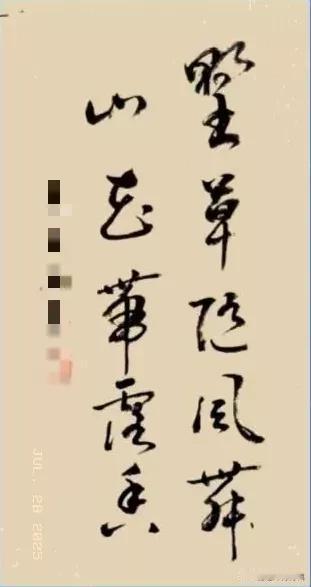 野草随风舞
山花带露香
JUL. 28 2025